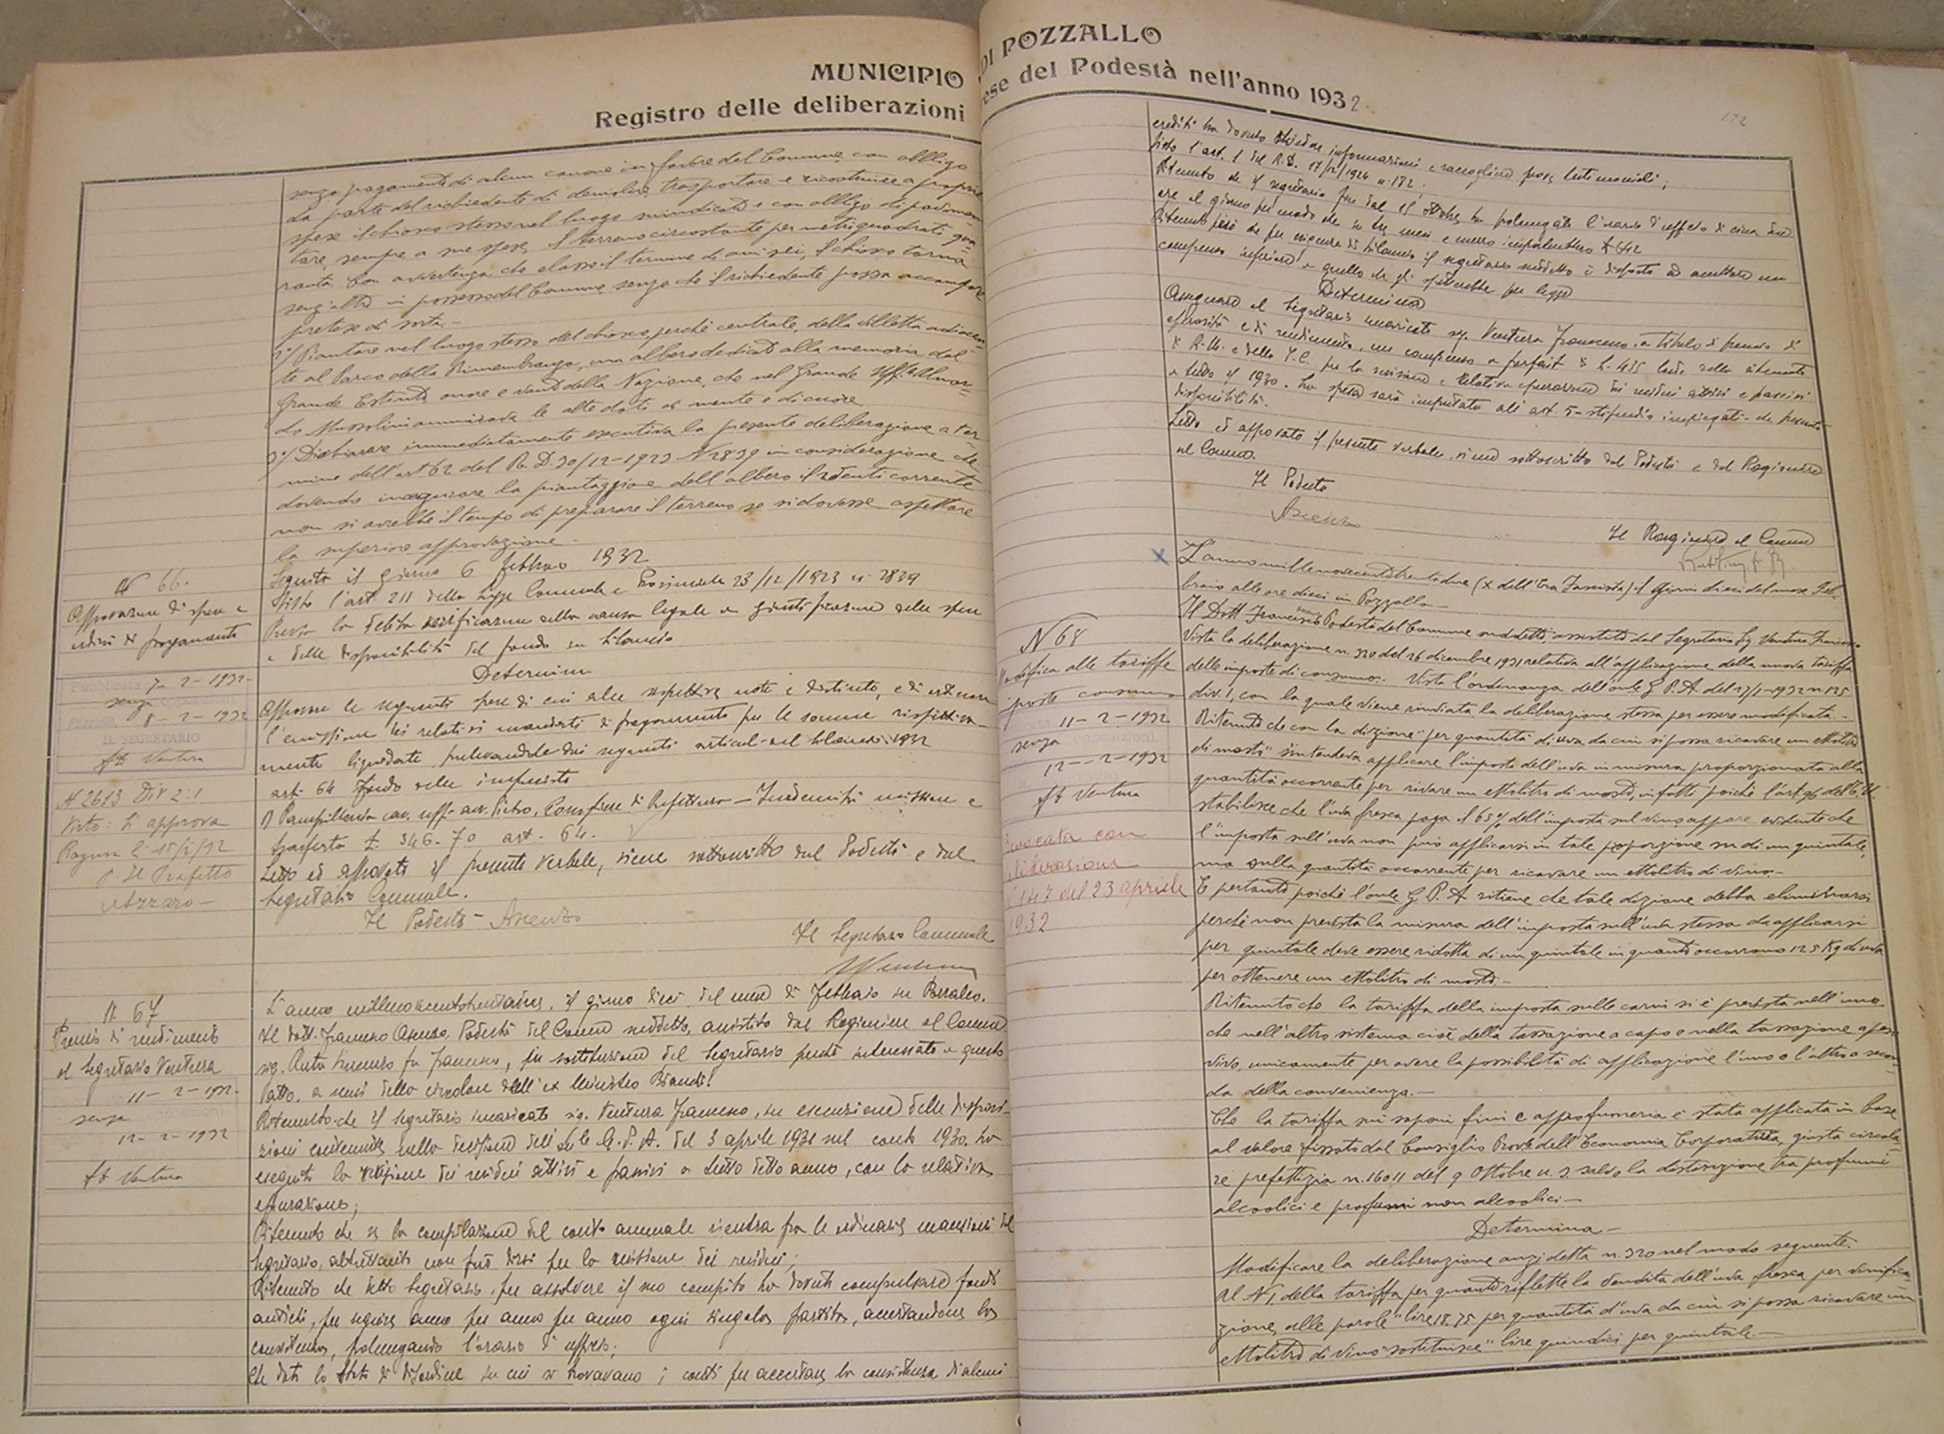 MUNICIPIO DI POZZALLO
Registro delle deliberazioni ese del Podestà nell'anno 1932
senza pagamento di alcun canone in favore del Comune, con obbligo
da parte del richiedente di demolire, trasportare e ricostruire a proprie
spese il chiosco stesso nel luogo suindicato e con obbligo di pavimen-
tare, sempre a sue spese, il terreno circostante per metri quadrati
ranta. Con avvertenza che elasso il termine di anni sei, il chiosco torna
senz'altro in possesso del Comune senza che il richiedente possa accampare
pretese di sorta.-
2°/ Piantare nel luogo stesso del chiosco, perchè centrale, della villetta adiacen-
te al Parco della Rimembranza, un albero dedicato alla memoria del
Grande Estinto, onore e vanto della Nazione, che nel Grande
do Mussolini ammirava le alte doti di mente e di cuore
3°/ Dichiarare immediatamente esecutiva la presente deliberazione a ter-
mine dell'art. 62 del R. D. 30/12-1923 N. 2839 in considerazione che
dovendo inaugurare la piantaggione dell'albero il corrente
non si avrebbe il tempo di preparare il terreno se si dovesse aspettare
la superiore approvazione.-
N 66.
Approvazione di spese e
ordini di pagamento
7-2-1932
senza
8-2-1932
IL SEGRETARIO
fto Ventura
N 2613 Div 2.1
Visto: Si approva
Ragusa li 15/2/32
p Il Prefetto
Azzaro -
Seguito il giorno 6 febbraio 1932
Visto l'art. 211 della Legge Comunale e Provinciale 23/12/1923 n. 2839
Previa la debita verificazione della causa legale e giustificazione delle spese
e delle disponibilità del fondo in bilancio
Determina
Approvare le seguenti spese di cui alle rispettive note e distinte, e di ordinare
l'emissione dei relativi mandati di pagamento per le somme rispettiva-
mente liquidate prelevandole dai seguenti articoli del bilancio 1932
art. 64 Fondo delle impreviste
1) cav. uff. avv. Pietro, Consigliere di Prefettura - Indennità missione e
trasferta £. 346.70 art. 64.
Letto ed approvato il presente verbale, viene sottoscritto dal Podestà e dal
Segretario Comunale.
Il Podestà - Ascenzo
Il Segretario Comunale
Ventura
N. 67
Premio di rendimento
al Segretario Ventura
11-2-1932-
senza
12-2-1932
fto Ventura
L'anno millenovecentotrentadue, il giorno dieci del mese di Febbraio in Pozzallo.
Il dott. Francesco Ascenzo, Podestà del Comune suddetto, assistito dal Ragioniere del Comune
sig. fu Francesco, in sostituzione del Segretario perchè interessato a questo
atto, a sensi della circolare dell'ex Ministro Bianchi.
Ritenuto che il segretario incaricato sig. Ventura Francesco, in esecuzione delle disposi-
zioni contenute nella decisione dell'On.le G.P.A. del 3 aprile 1931 sul conto 1930, ha
eseguito la revisione dei residui attivi e passivi a tutto detto anno, con la relativa
epurazione;
Ritenuto che se la compilazione del conto annuale rientra fra le ordinarie mansioni del
Segretario, altrettanto non può dirsi per la revisione dei residui;
Ritenuto che detto Segretario, per assolvere il suo compito ha dovuto compulsare fondi
antichi, per seguire anno per anno per anno ogni singola partita, accertandone la
consistenza, prolungando l'orario d'ufficio;
Che dato lo stato di disordine in cui si trovavano i conti per accertare la consistenza di alcuni
172
crediti ha dovuto chiedere informazioni e raccogliere prove testimoniali;
Visto l'art. 1 del R.D. 17/2/1924 n. 182.
Ritenuto che il segretario fin dal 15 ottobre ha prolungato l'orario d'ufficio di circa due
ore al giorno per modo che in tre mesi e mezzo importerebbe £ 642
Ritenuto però che per esigenze di bilancio il segretario suddetto è disposto ad accettare un
compenso inferiore a quello che gli spetterebbe per legge
Determina
Assegnare al Segretario incaricato sig. Ventura Francesco, a titolo di premio di
operosità e di rendimento, un compenso a forfait di £. 435 lorde delle ritenute
di R.M. e della T.C. per la revisione e relativa epurazione dei residui attivi e passivi
a tutto il 1930. La spesa sarà imputata all'art. 5 - stipendio impiegati - che presenta
disponibilità.
Letto ed approvato il presente verbale, viene sottoscritto dal Podestà e dal Ragioniere
del Comune.
Il Podestà
Ascenzo
Il Ragioniere del Comune
x
L'anno millenovecentotrentadue (X dell'Era Fascista) il giorno dieci del mese Feb-
braio alle ore dieci in Pozzallo-
Il Dott Francesco Podestà del Comune suddetto assistito dal Segretario Sig Ventura Francesco
N 68
Modifica alle tariffe
imposte consumo
11-2-1932
senza
12-2-1932
fto Ventura
Revocata con
deliberazione
del 23 aprile
1932
Vista la deliberazione n. 320 del 26 dicembre 1931 relativa all'applicazione della nuova tariffa
delle imposte di consumo. Vista l'ordinanza dell'on.le G.P.A. del 27/1-1932 n 125
div. 1, con la quale viene rinviata la deliberazione stessa per essere modificata.-
Ritenuto che con la dizione "per quantità di uva da cui si possa ricavare un ettolitro
di mosto" s'intendeva applicare l'imposta dell'uva in misura proporzionata alla
quantità occorrente per ricavare un ettolitro di mosto, infatti poichè l'art. 96 del T.U.
stabilisce che l'uva fresca paga il 65% dell'imposta sul vino, appare evidente che
l'imposta sull'uva non può applicarsi in tale proporzione su di un quintale,
ma sulla quantità occorrente per ricavare un ettolitro di vino.-
E pertanto poichè l'on.le G.P.A. ritiene che tale dizione debba eliminarsi
perchè non prevista la misura dell'imposta sull'uva stessa da applicarsi
per quintale deve essere ridotta di un quintale in quanto occorrono 125 Kg di uva
per ottenere un ettolitro di mosto.-
Ritenuto che la tariffa della imposta sulle carni si è prevista nell'uno
che nell'altro sistema cioè della tassazione a capo e nella tassazione a peso
vivo, unicamente per avere la possibilità di applicazione l'uno o l'altro a secon-
da della convenienza.-
Che la tariffa sui saponi fini e approfumeria è stata applicata in base
al valore fissato dal Consiglio Prov.le dell'Economia Corporativa, giusta circola-
re prefettizia n. 16011 del 9 Ottobre u. s. salvo la distinzione tra profumi
alcoolici e profumi non alcoolici.-
Determina-
Modificare la deliberazione anzidetta n. 320 nel modo seguente.
Al N 1, della tariffa per quanto riflette la vendita dell'uva fresca per vinifica-
zione, alle parole "lire 18.75 per quantità d'uva da cui si possa ricavare un
ettolitro di vino" sostituisce "lire quindici per quintale.-